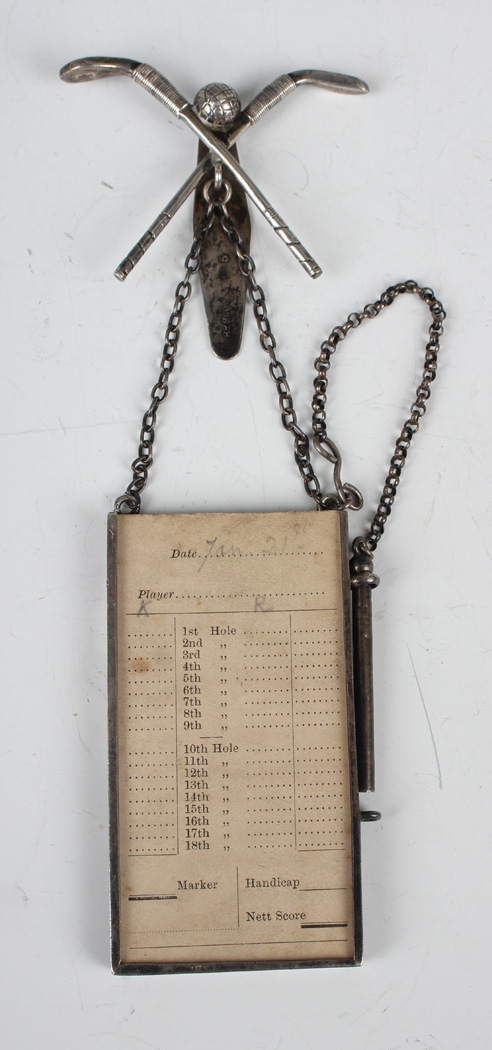 Date Jan 21st
Player
K R
1st Hole
2nd „
3rd „
4th „
5th „
6th „
7th „
8th „
9th „
10th Hole
11th „
12th „
13th „
14th „
15th „
16th „
17th „
18th „
Marker Handicap
Nett Score